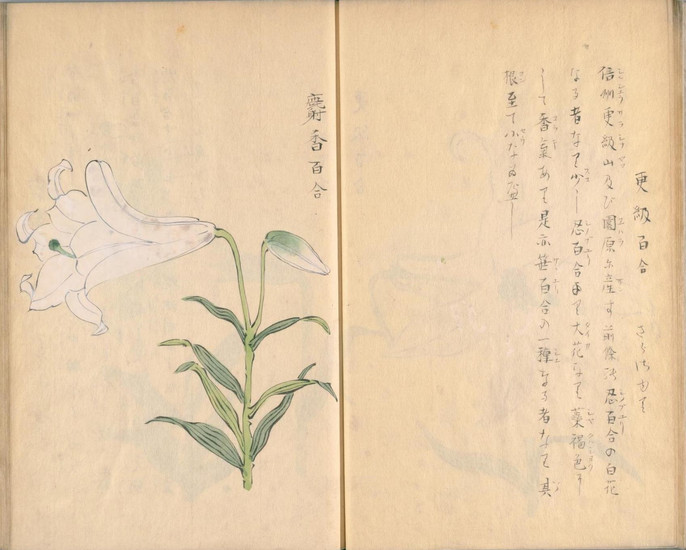 更級百合 さらしなゆり
信州更級山及び園原に産す前條の忍百合の白花
なる者なり少し忍百合より大花なり蘂褐色に
して香氣あり是亦笹百合の一種なる者なり其
根至て小なる
麝香百合